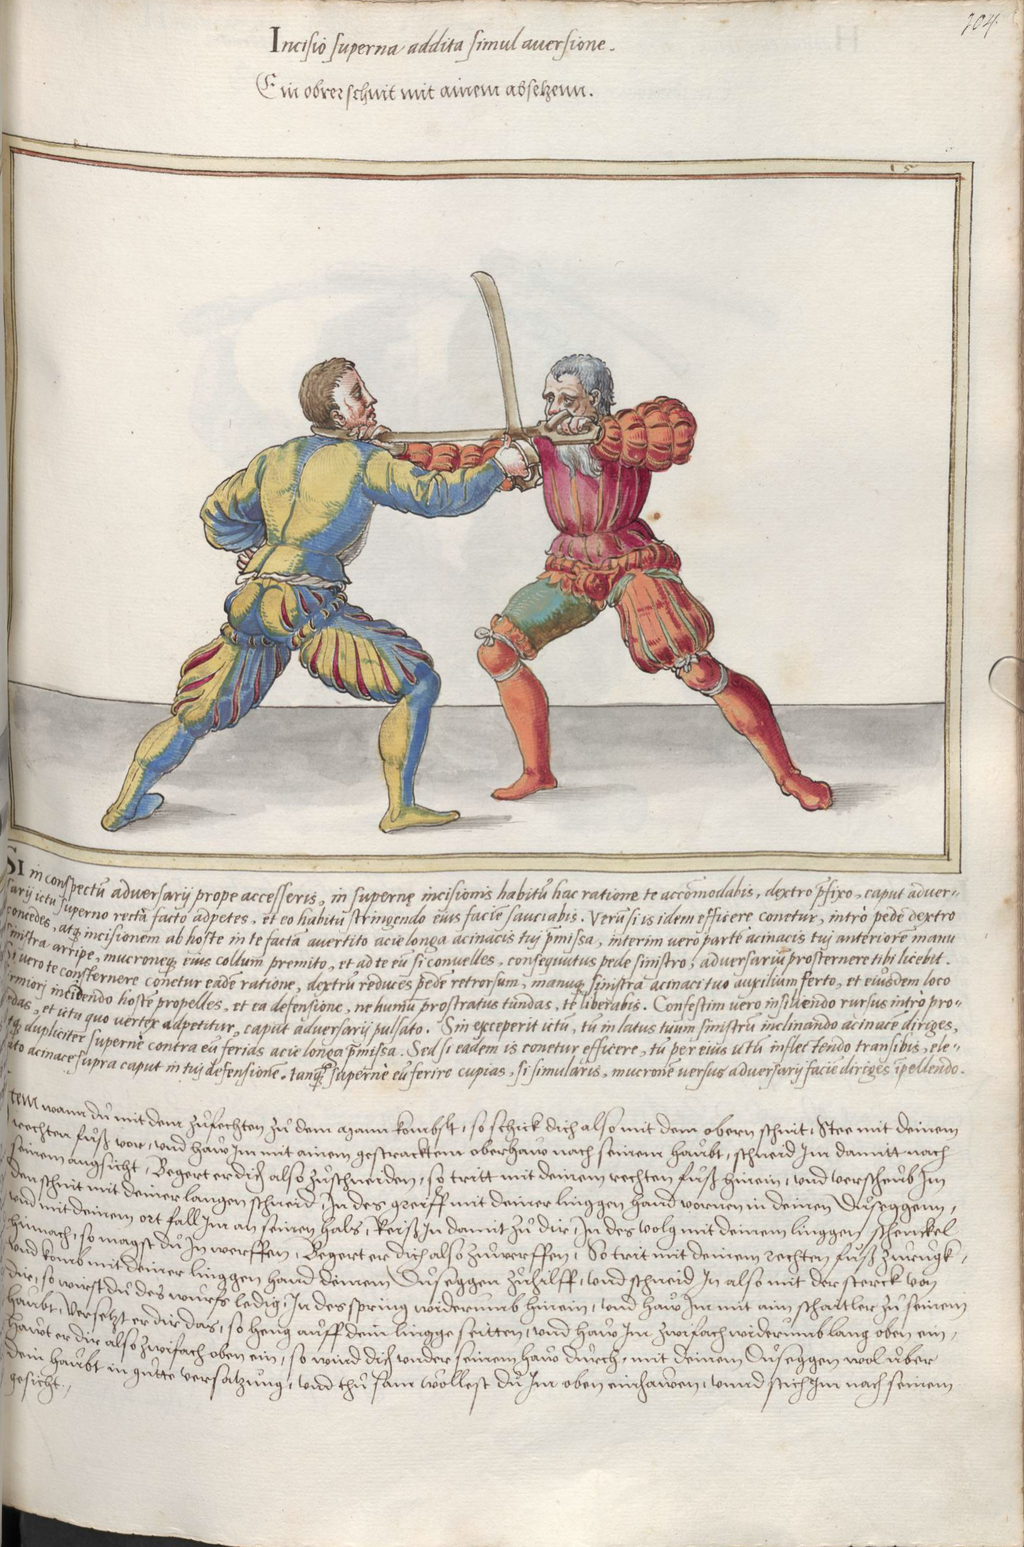 204
Incisio superna addita simul auersione.
Ein obrer schnit mit ainem absetzenn.
15
SI in conspectū adversarij prope accesseris, in supernę incisionis habitū hac ratione te accōmodabis, dextro p̄fixo, caput adver-
sarij ictu superno recta facto adpetes, et eo habitū stringendo eius facie sauciabis. Verū si is idem efficere conetur, intrò pede dextro
concedes, atq; incisionem ab hoste in te factā avertito acie longa acinacis tuj p̄missa, interim vero parte acinacis tuj anteriorē manu
sinistra arripe, mucroneq; eius collum premito, et ad te eū si convelles, consequutus pede sinistro, adversariū prosternere tibi licebit.
Si vero te consternere conetur eadē ratione, dextrū reduces pedē retrorsum, manuq; sinistra acinaci tuo auxilium ferto, et eiusdem loco
firmiorj incidendo hostē propelles, et ea defensione, ne humū prostratus tundas, te liberabis. Confestim vero insiliendo rursus intrò pro-
das, et ictu quo vertex adpetitur, caput adversarij pulsato. Sin exceperit ictū, tu in latus tuum sinistrū inclinando acinacē diriges,
eq; dupliciter supernè contra eū ferias acie longa p̄missa. Sed si eadem is conetur efficere, tu per eius ictū inflectendo transibis, ele-
ato acinace supra caput in tuj defensionē, tanq; supernè eū ferire cupias, si simularis, mucronē versus adversarij facie diriges īpellendo.
Item wann dū mit dem zůfechten zů dem Mann kombst, so schick dich also mit dem obern schnit, Stee mit deinem
rechten fůß vor, vnnd haw Jm mit ainem gestracktem oberhaw nach seinem haubt, schneid Jm damit nach
seinem angsicht, Begert er dich also zůschneiden, so tritt mit deinem rechten fůß hinein, vnnd verscheub Jm
den schnit mit deiner langen schneid, Jn des greiff mit deiner linggen hand vornen in deinen Důseggenn,
vnnd mit deinem ort fall Jm an seinen hals, Reiß Jn damit zů dir, Jn des volg mit deinem linggen schenckel
hinnach, so magst dů Jn werffen, Begert er dich also zůwerffen, So trit mit deinem rechten fůß zurugk,
vnnd komb mit deiner linggen hand deinem Důseggen zůhilff, vnnd schneid Jn also mit der sterck von
dir, so wirst dů des wurfs ledig, Jn des spring widerumb hinein, vnnd haw Jm mit aim schaitler zů seinem
haubt, Versetzt er dir das, so heng auff dein lingge seitten, vnnd haw Jm zwifach widerumb lang oben ein,
hawt er dir also zwifach oben ein, so wind dich vnder seinem haw důrch, mit deinem Důseggen wol uber
dein haubt in gůtte versatzung, vnnd thů sam wöllest dů Jm oben einhawen, vnnd stich Jm nach seinem
gesicht.